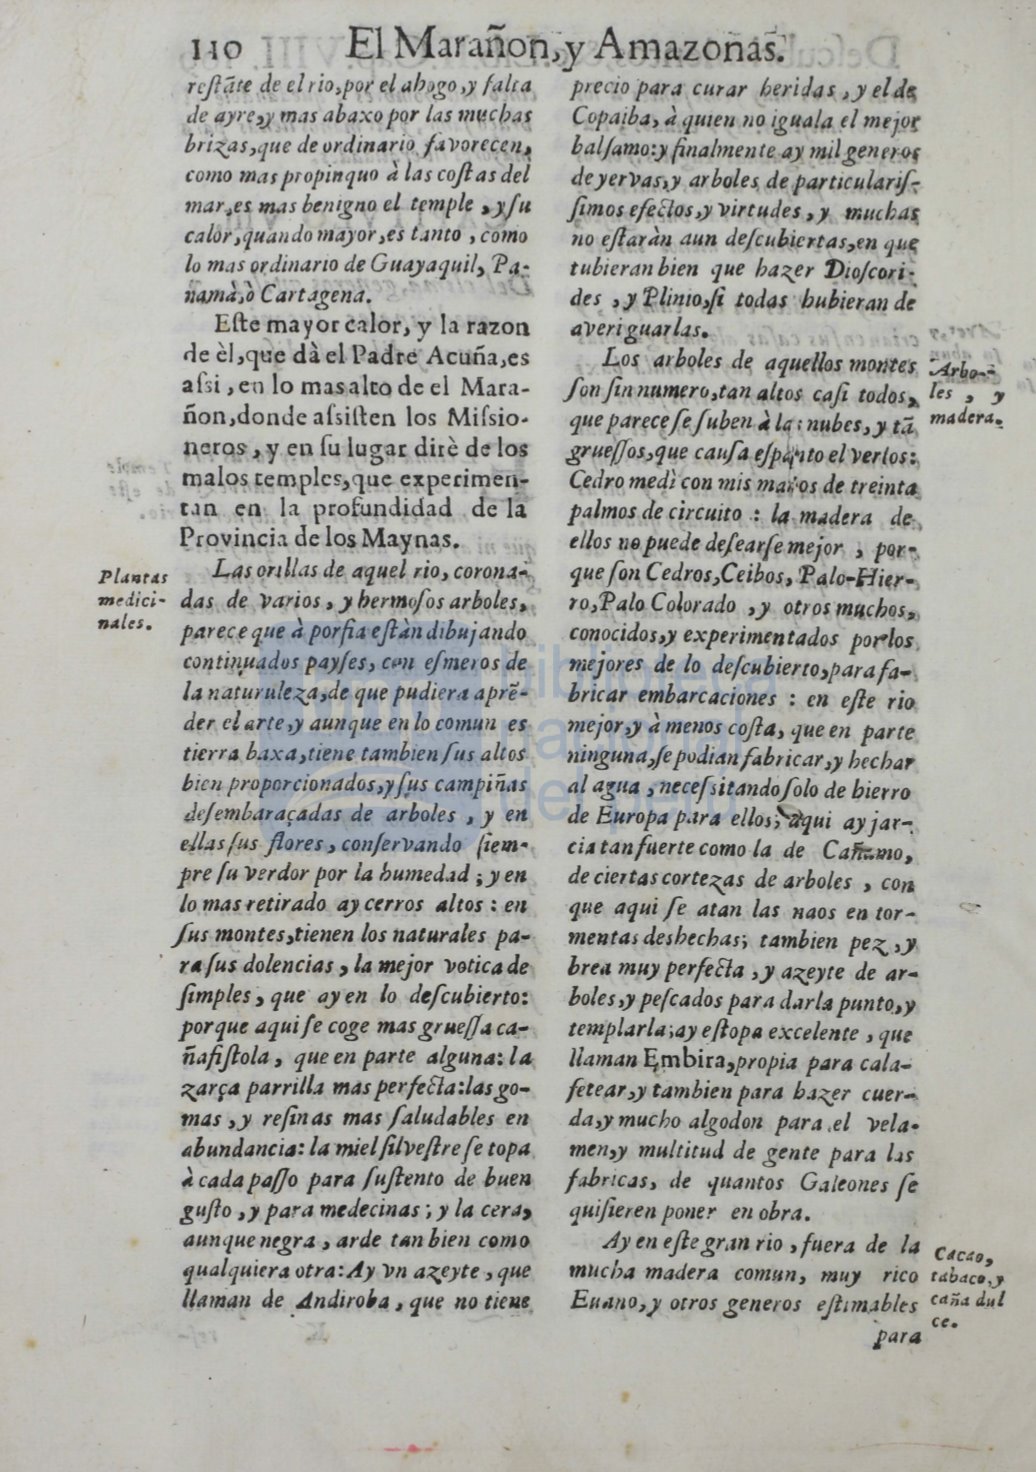 110 El Marañon, y Amazonas.
restāte de el rio, por el ahogo, y falta
de ayre, y mas abaxo por las muchas
brizas, que de ordinario favorecen,
como mas propinquo à las costas del
mar, es mas benigno el temple, y su
calor, quando mayor, es tanto, como
lo mas ordinario de Guayaquil, Pa-
namà, ò Cartagena.
Este mayor calor, y la razon
de èl, que dà el Padre Acuña, es
assi, en lo mas alto de el Mara-
ñon, donde assisten los Missio-
neros, y en su lugar dirè de los
malos temples, que experimen-
tan en la profundidad de la
Provincia de los Maynas.
Plantas
medici-
nales.
Las orillas de aquel rio, corona-
das de varios, y hermosos arboles,
parece que à porfia estàn dibujando
continuados payses, con esmeros de
la naturuleza, de que pudiera aprē-
der el arte, y aunque en lo comun es
tierra baxa, tiene tambien sus altos
bien proporcionados, y sus campiñas
desembaraçadas de arboles, y en
ellas sus flores, conservando siem-
pre su verdor por la humedad; y en
lo mas retirado ay cerros altos: en
sus montes, tienen los naturales pa-
ra sus dolencias, la mejor votica de
simples, que ay en lo descubierto:
porque aqui se coge mas gruessa ca-
ñafistola, que en parte alguna: la
zarça parrilla mas perfecta: las go-
mas, y resinas mas saludables en
abundancia: la miel silvestre se topa
à cada passo para sustento de buen
gusto, y para medecinas; y la cera,
aunque negra, arde tan bien como
qualquiera otra: Ay vn azeyte, que
llaman de Andiroba, que no tiene
precio para curar heridas, y el de
Copaiba, à quien no iguala el mejor
balsamo: y finalmente ay mil generos
de yervas, y arboles de particularis-
simos efectos, y virtudes, y muchas
no estaràn aun descubiertas, en que
tubieran bien que hazer Dioscori-
des, y Plinio, si todas hubieran de
averiguarlas.
Los arboles de aquellos montes
son sin numero, tan altos casi todos,
que parece se suben à las nubes, y tā
gruessos, que causa espanto el verlos:
Cedro medì con mis manos de treinta
palmos de circuito: la madera de
ellos no puede desearse mejor, por-
que son Cedros, Ceibos, Palo-Hier-
ro, Palo Colorado, y otros muchos,
conocidos, y experimentados por los
mejores de lo descubierto, para fa-
bricar embarcaciones: en este rio
mejor, y à menos costa, que en parte
ninguna, se podian fabricar, y hechar
al agua, necessitando solo de hierro
de Europa para ellos; aqui ay jar-
cia tan fuerte como la de Cañamo,
de ciertas cortezas de arboles, con
que aqui se atan las naos en tor-
mentas deshechas; tambien pez, y
brea muy perfecta, y azeyte de ar-
boles, y pescados para darla punto, y
templarla; ay estopa excelente, que
llaman Embira, propia para cala-
fetear, y tambien para hazer cuer-
da, y mucho algodon para el vela-
men, y multitud de gente para las
fabricas, de quantos Galeones se
quisieren poner en obra.
Ay en este gran rio, fuera de la
mucha madera comun, muy rico
Euano, y otros generos estimables
para
Arbo-
les, y
madera.
Cacao,
tabaco, y
caña dul
ce.